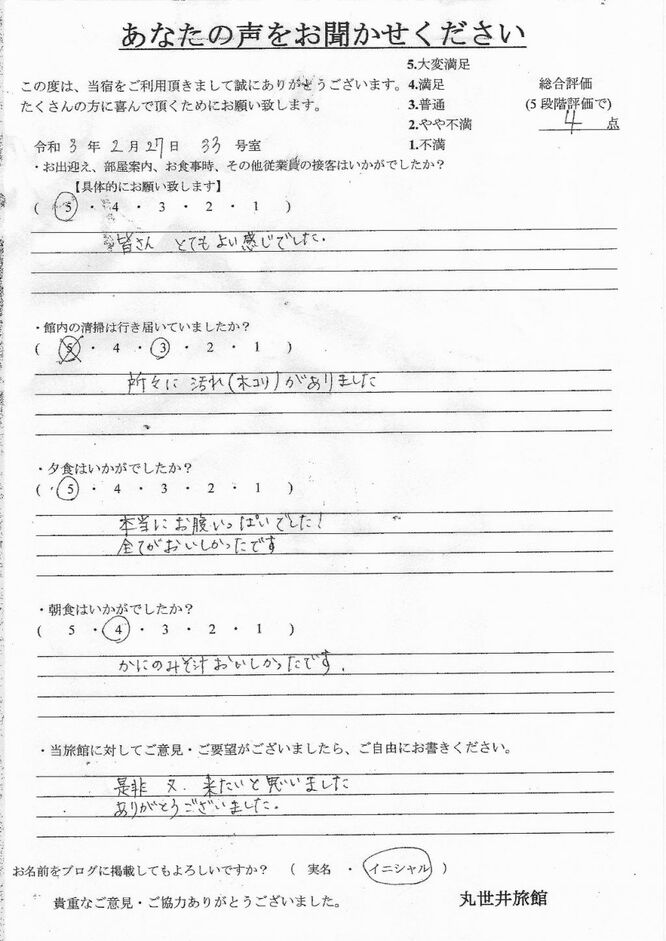 あなたの声をお聞かせください
この度は、当宿をご利用頂きまして誠にありがとうございます。
たくさんの方に喜んで頂くためにお願い致します。
5.大変満足
4.満足
3.普通
2.やや不満
1.不満
総合評価
(5段階評価で)
4 点
令和 3 年 2 月 27 日 33 号室
・お出迎え、部屋案内、お食事時、その他従業員の接客はいかがでしたか？
【具体的にお願い致します】
( 5 ・ 4 ・ 3 ・ 2 ・ 1 )
皆さん とてもよい感じでした.
・館内の清掃は行き届いていましたか？
( 5 ・ 4 ・ 3 ・ 2 ・ 1 )
所々に 汚れ(ホコリ)がありました
・夕食はいかがでしたか？
( 5 ・ 4 ・ 3 ・ 2 ・ 1 )
本当にお腹いっぱいでした!
全てがおいしかったです
・朝食はいかがでしたか？
( 5 ・ 4 ・ 3 ・ 2 ・ 1 )
かにのみそ汁おいしかったです.
・当旅館に対してご意見・ご要望がございましたら、ご自由にお書きください。
是非 又. 来たいと思いました
ありがとうございました.
お名前をブログに掲載してもよろしいですか？ ( 実名 ・ イニシャル )
貴重なご意見・ご協力ありがとうございました。
丸世井旅館